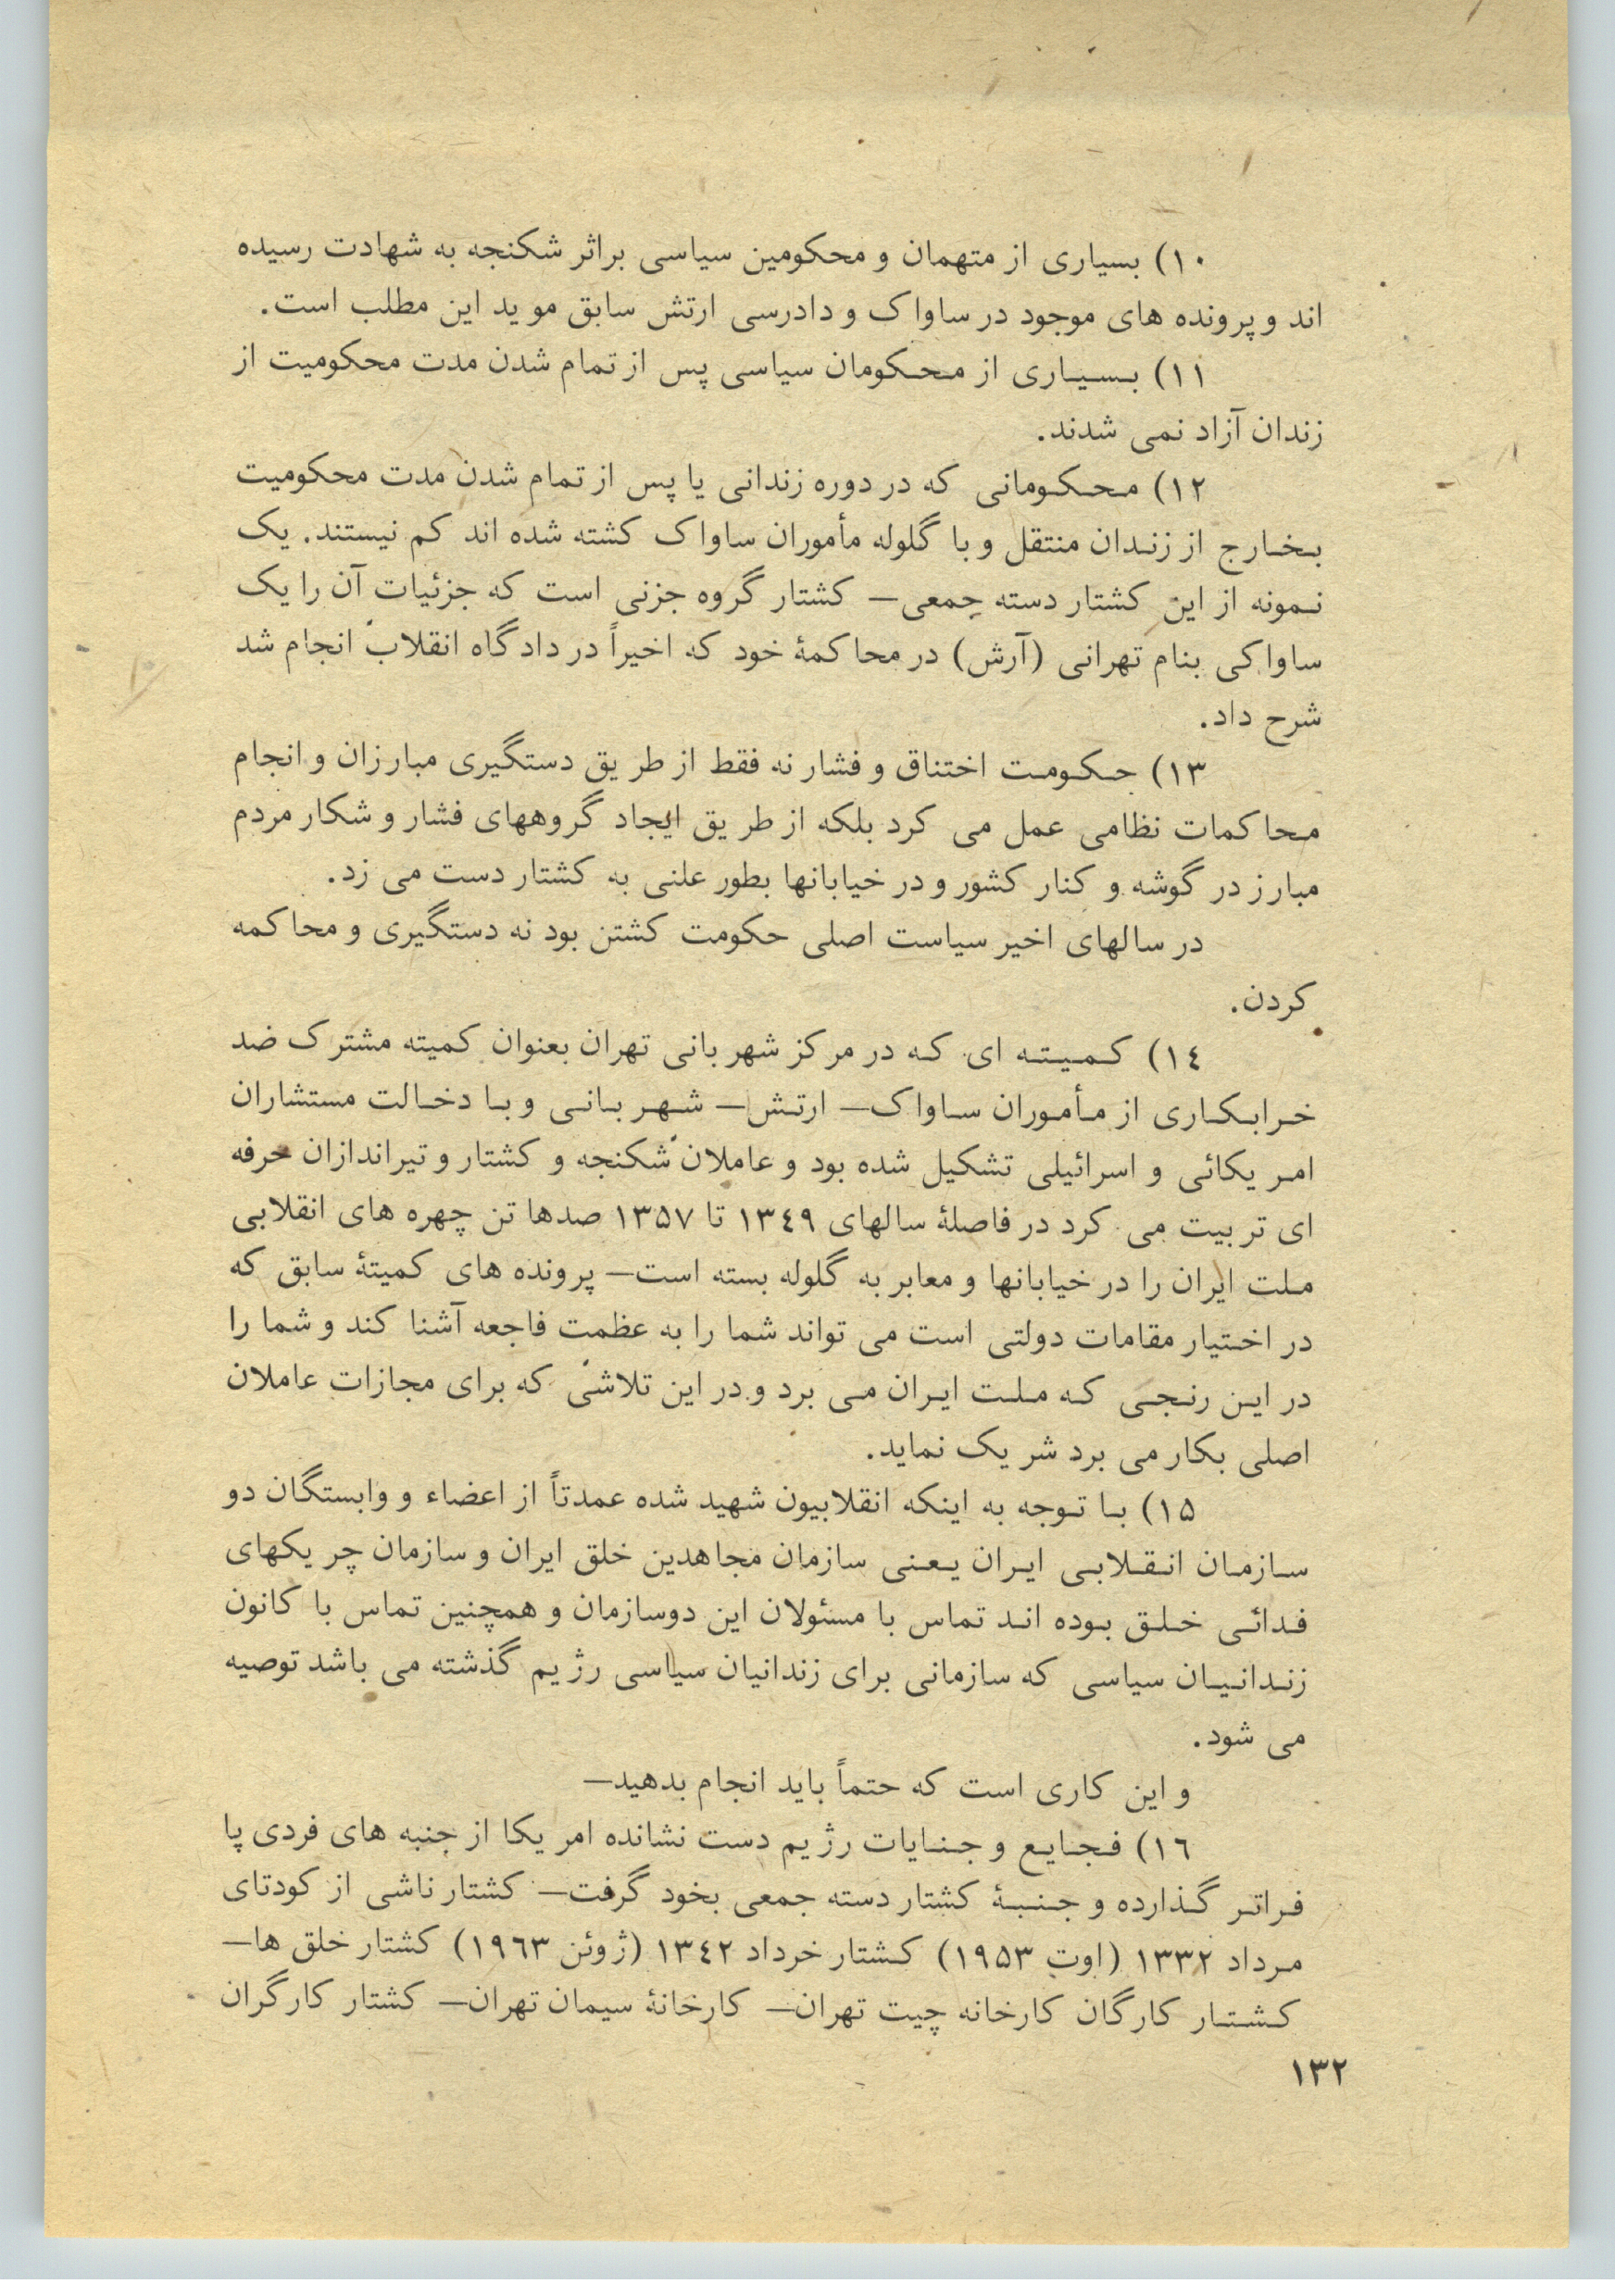 ۱۰) بسیاری از متهمان و محکومین سیاسی براثر شکنجه به شهادت رسیده
اند و پرونده های موجود در ساواک و دادرسی ارتش سابق مو ید این مطلب است.
۱۱) بسیاری از محکومان سیاسی پس از تمام شدن مدت محکومیت از
زندان آزاد نمی شدند.
۱۲) محکومانی که در دوره زندانی یا پس از تمام شدن مدت محکومیت
بخارج از زندان منتقل و با گلوله مأموران ساواک کشته شده اند کم نیستند. یک
نمونه از این کشتار دسته جمعی— کشتار گروه جزنی است که جزئیات آن را یک
ساواکی بنام تهرانی (آرش) در محاکمهٔ خود که اخیراً در دادگاه انقلاب انجام شد
شرح داد.
۱۳) حکومت اختناق و فشار نه فقط از طریق دستگیری مبارزان و انجام
محاکمات نظامی عمل می کرد بلکه از طریق ایجاد گروههای فشار و شکار مردم
مبارز در گوشه و کنار کشور و در خیابانها بطور علنی به کشتار دست می زد.
در سالهای اخیر سیاست اصلی حکومت کشتن بود نه دستگیری و محاکمه
کردن.
۱٤) کمیته ای که در مرکز شهربانی تهران بعنوان کمیته مشترک ضد
خرابکاری از مأموران ساواک— ارتش— شهربانی و با دخالت مستشاران
امریکائی و اسرائیلی تشکیل شده بود و عاملان شکنجه و کشتار و تیراندازان حرفه
ای تربیت می کرد در فاصلهٔ سالهای ۱۳٤۹ تا ۱۳۵۷ صدها تن چهره های انقلابی
ملت ایران را در خیابانها و معابر به گلوله بسته است— پرونده های کمیتهٔ سابق که
در اختیار مقامات دولتی است می تواند شما را به عظمت فاجعه آشنا کند و شما را
در این رنجی که ملت ایران می برد و در این تلاشی که برای مجازات عاملان
اصلی بکار می برد شریک نماید.
۱۵) با توجه به اینکه انقلابیون شهید شده عمدتاً از اعضاء و وابستگان دو
سازمان انقلابی ایران یعنی سازمان مجاهدین خلق ایران و سازمان چریکهای
فدائی خلق بوده اند تماس با مسئولان این دوسازمان و همچنین تماس با کانون
زندانیان سیاسی که سازمانی برای زندانیان سیاسی رژیم گذشته می باشد توصیه
می شود.
و این کاری است که حتماً باید انجام بدهید—
۱٦) فجایع و جنایات رژیم دست نشانده امریکا از جنبه های فردی پا
فراتر گذارده و جنبهٔ کشتار دسته جمعی بخود گرفت— کشتار ناشی از کودتای
مرداد ۱۳۳۲ (اوت ۱۹۵۳) کشتار خرداد ۱۳٤۲ (ژوئن ۱۹٦۳) کشتار خلق ها—
کشتار کارگان کارخانه چیت تهران— کارخانهٔ سیمان تهران— کشتار کارگران
۱۳۲